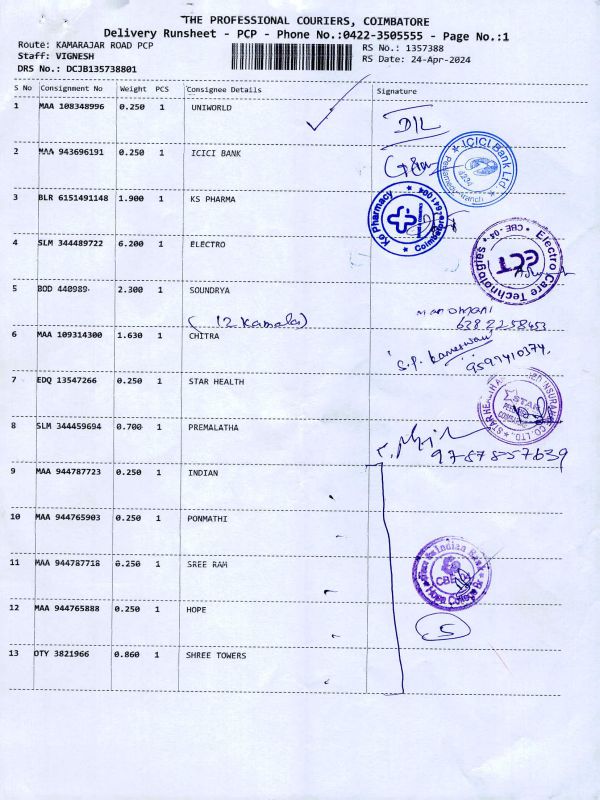 THE PROFESSIONAL COURIERS, COIMBATORE
Delivery Runsheet - PCP - Phone No.:0422-3505555 - Page No.:1
Route: KAMARAJAR ROAD PCP
RS No.: 1357388
Staff: VIGNESH
RS Date: 24-Apr-2024
DRS No.: DCJB135738801
S No Consignment No Weight PCS Consignee Details Signature
1 MAA 108348996 0.250 1 UNIWORLD
2 MAA 943696191 0.250 1 ICICI BANK
ICICI Bank Ltd
3 BLR 6151491148 1.900 1 KS PHARMA
Pharmacy Coimbatore
4 SLM 344489722 6.200 1 ELECTRO
Electro Care Technologies CBE -04
ECT
5 BOD 440989 2.300 1 SOUNDRYA
(12 Kamala)
6382258453
6 MAA 109314300 1.630 1 CHITRA
S.P. Kameswari
9597410374
7 EDQ 13547266 0.250 1 STAR HEALTH
STAR
8 SLM 344459694 0.700 1 PREMALATHA
9787857639
9 MAA 944787723 0.250 1 INDIAN
10 MAA 944765903 0.250 1 PONMATHI
11 MAA 944787718 0.250 1 SREE RAM
Indian Bank
12 MAA 944765888 0.250 1 HOPE
5
13 OTY 3821966 0.860 1 SHREE TOWERS